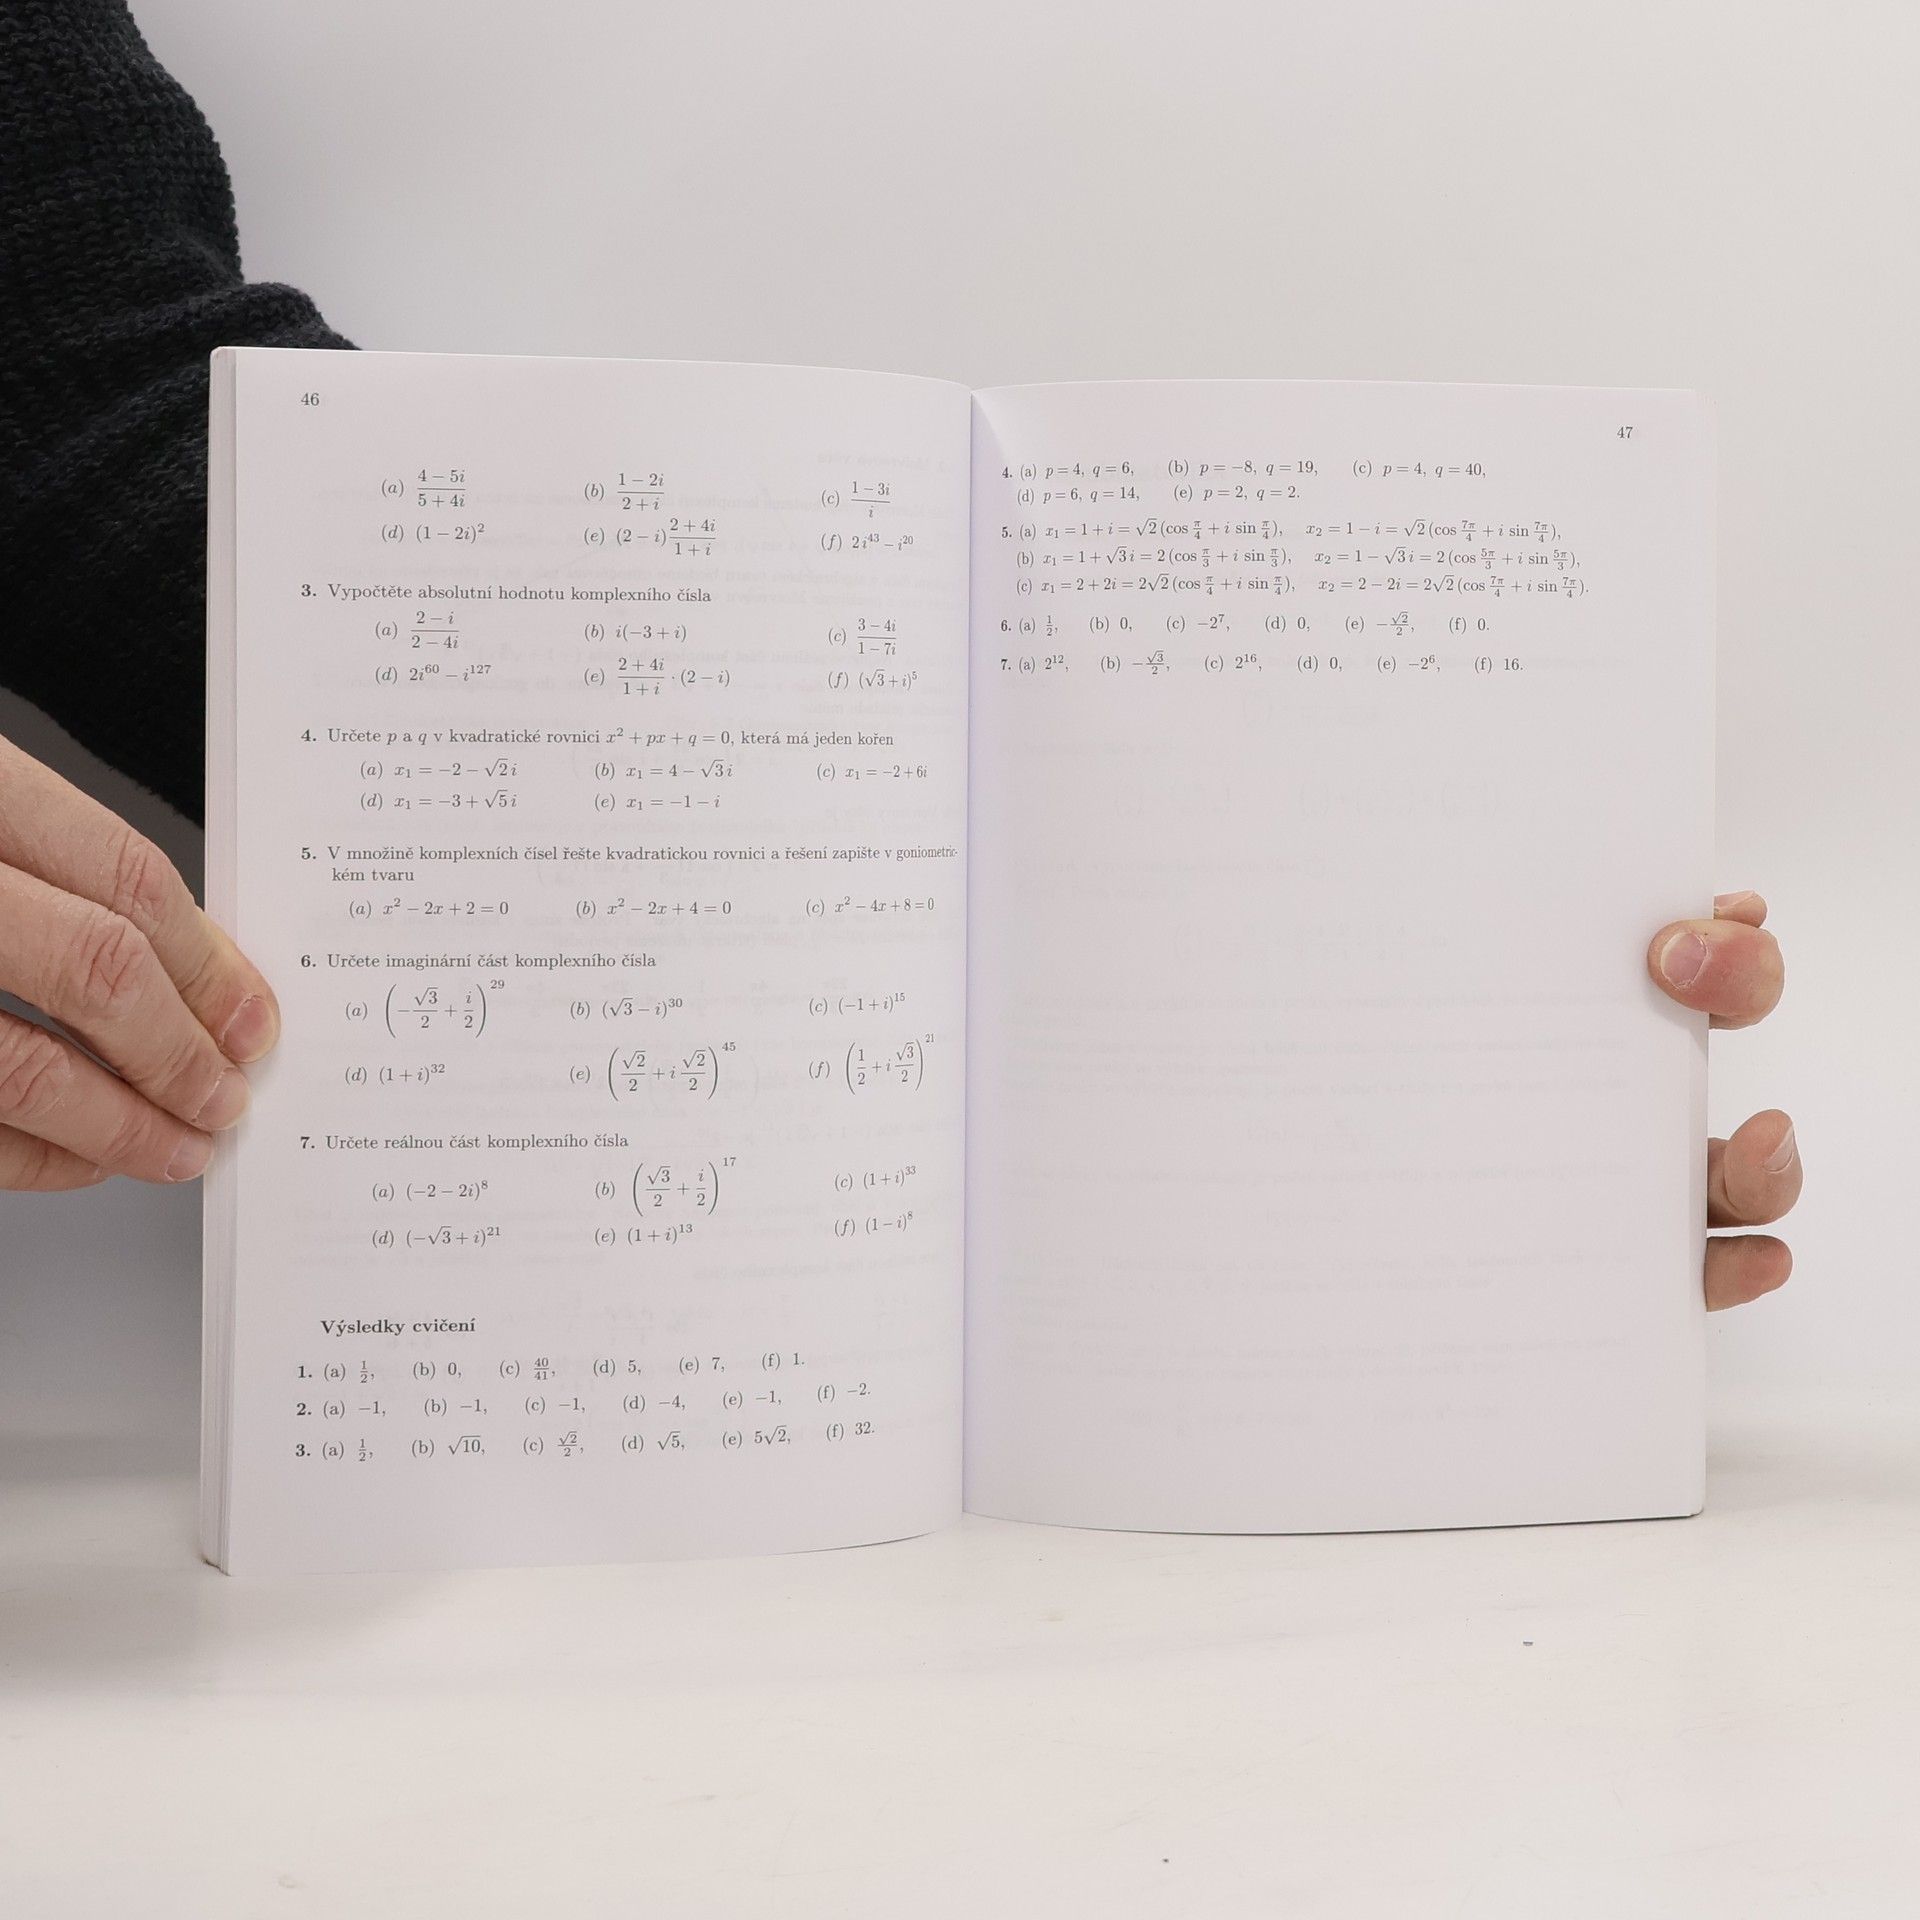 46
(a) \frac{4-5i}{5+4i} (b) \frac{1-2i}{2+i} (c) \frac{1-3i}{i}
(d) (1-2i)^2 (e) (2-i)\frac{2+4i}{1+i} (f) 2i^{43}-i^{20}
3. Vypočtěte absolutní hodnotu komplexního čísla
(a) \frac{2-i}{2-4i} (b) i(-3+i) (c) \frac{3-4i}{1-7i}
(d) 2i^{60}-i^{127} (e) \frac{2+4i}{1+i}·(2-i) (f) (√3+i)^5
4. Určete p a q v kvadratické rovnici x^2+px+q=0, která má jeden kořen
(a) x_1=-2-√2i (b) x_1=4-√3i (c) x_1=-2+6i
(d) x_1=-3+√5i (e) x_1=-1-i
5. V množině komplexních čísel řešte kvadratickou rovnici a řešení zapište v goniometric-
kém tvaru
(a) x^2-2x+2=0 (b) x^2-2x+4=0 (c) x^2-4x+8=0
6. Určete imaginární část komplexního čísla
(a) (-\frac{√3}{2}+\frac{i}{2})^{29} (b) (√3-i)^{30} (c) (-1+i)^{15}
(d) (1+i)^{32} (e) (\frac{√2}{2}+i\frac{√2}{2})^{45} (f) (\frac{1}{2}+i\frac{√3}{2})^{21}
7. Určete reálnou část komplexního čísla
(a) (-2-2i)^8 (b) (\frac{√3}{2}+\frac{i}{2})^{17} (c) (1+i)^{33}
(d) (-√3+i)^{21} (e) (1+i)^{13} (f) (1-i)^8
Výsledky cvičení
1. (a) \frac{1}{2}, (b) 0, (c) \frac{40}{41}, (d) 5, (e) 7, (f) 1.
2. (a) -1, (b) -1, (c) -1, (d) -4, (e) -1, (f) -2.
3. (a) \frac{1}{2}, (b) √10, (c) \frac{√2}{2}, (d) √5, (e) 5√2, (f) 32.
47
4. (a) p=4, q=6, (b) p=-8, q=19, (c) p=4, q=40,
(d) p=6, q=14, (e) p=2, q=2.
5. (a) x_1=1+i=√2(cos\frac{π}{4}+i sin\frac{π}{4}), x_2=1-i=√2(cos\frac{7π}{4}+i sin\frac{7π}{4}),
(b) x_1=1+√3i=2(cos\frac{π}{3}+i sin\frac{π}{3}), x_2=1-√3i=2(cos\frac{5π}{3}+i sin\frac{5π}{3}),
(c) x_1=2+2i=2√2(cos\frac{π}{4}+i sin\frac{π}{4}), x_2=2-2i=2√2(cos\frac{7π}{4}+i sin\frac{7π}{4}).
6. (a) \frac{1}{2}, (b) 0, (c) -2^7, (d) 0, (e) -\frac{√2}{2}, (f) 0.
7. (a) 2^{12}, (b) -\frac{√3}{2}, (c) 2^{16}, (d) 0, (e) -2^6, (f) 16.